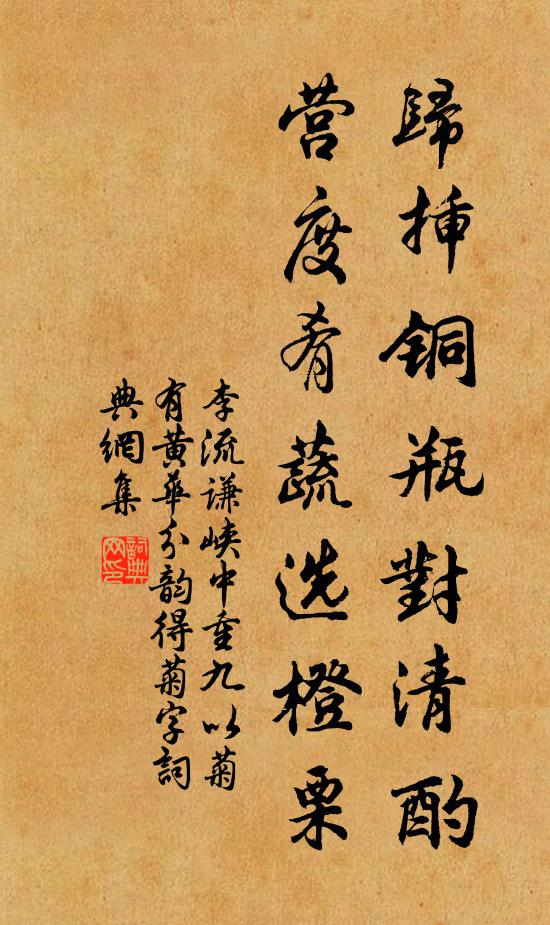 歸挿铜瓶對清酌
营度肴蔬选橙栗
李流谦峡中重九以菊
有黄華分韵得菊字詞
典網集
詞典
网印